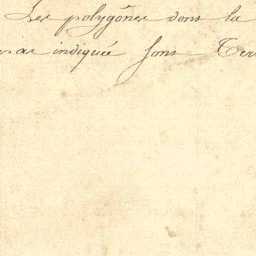 Les polygônes dont la
pas indiquée sont Terr